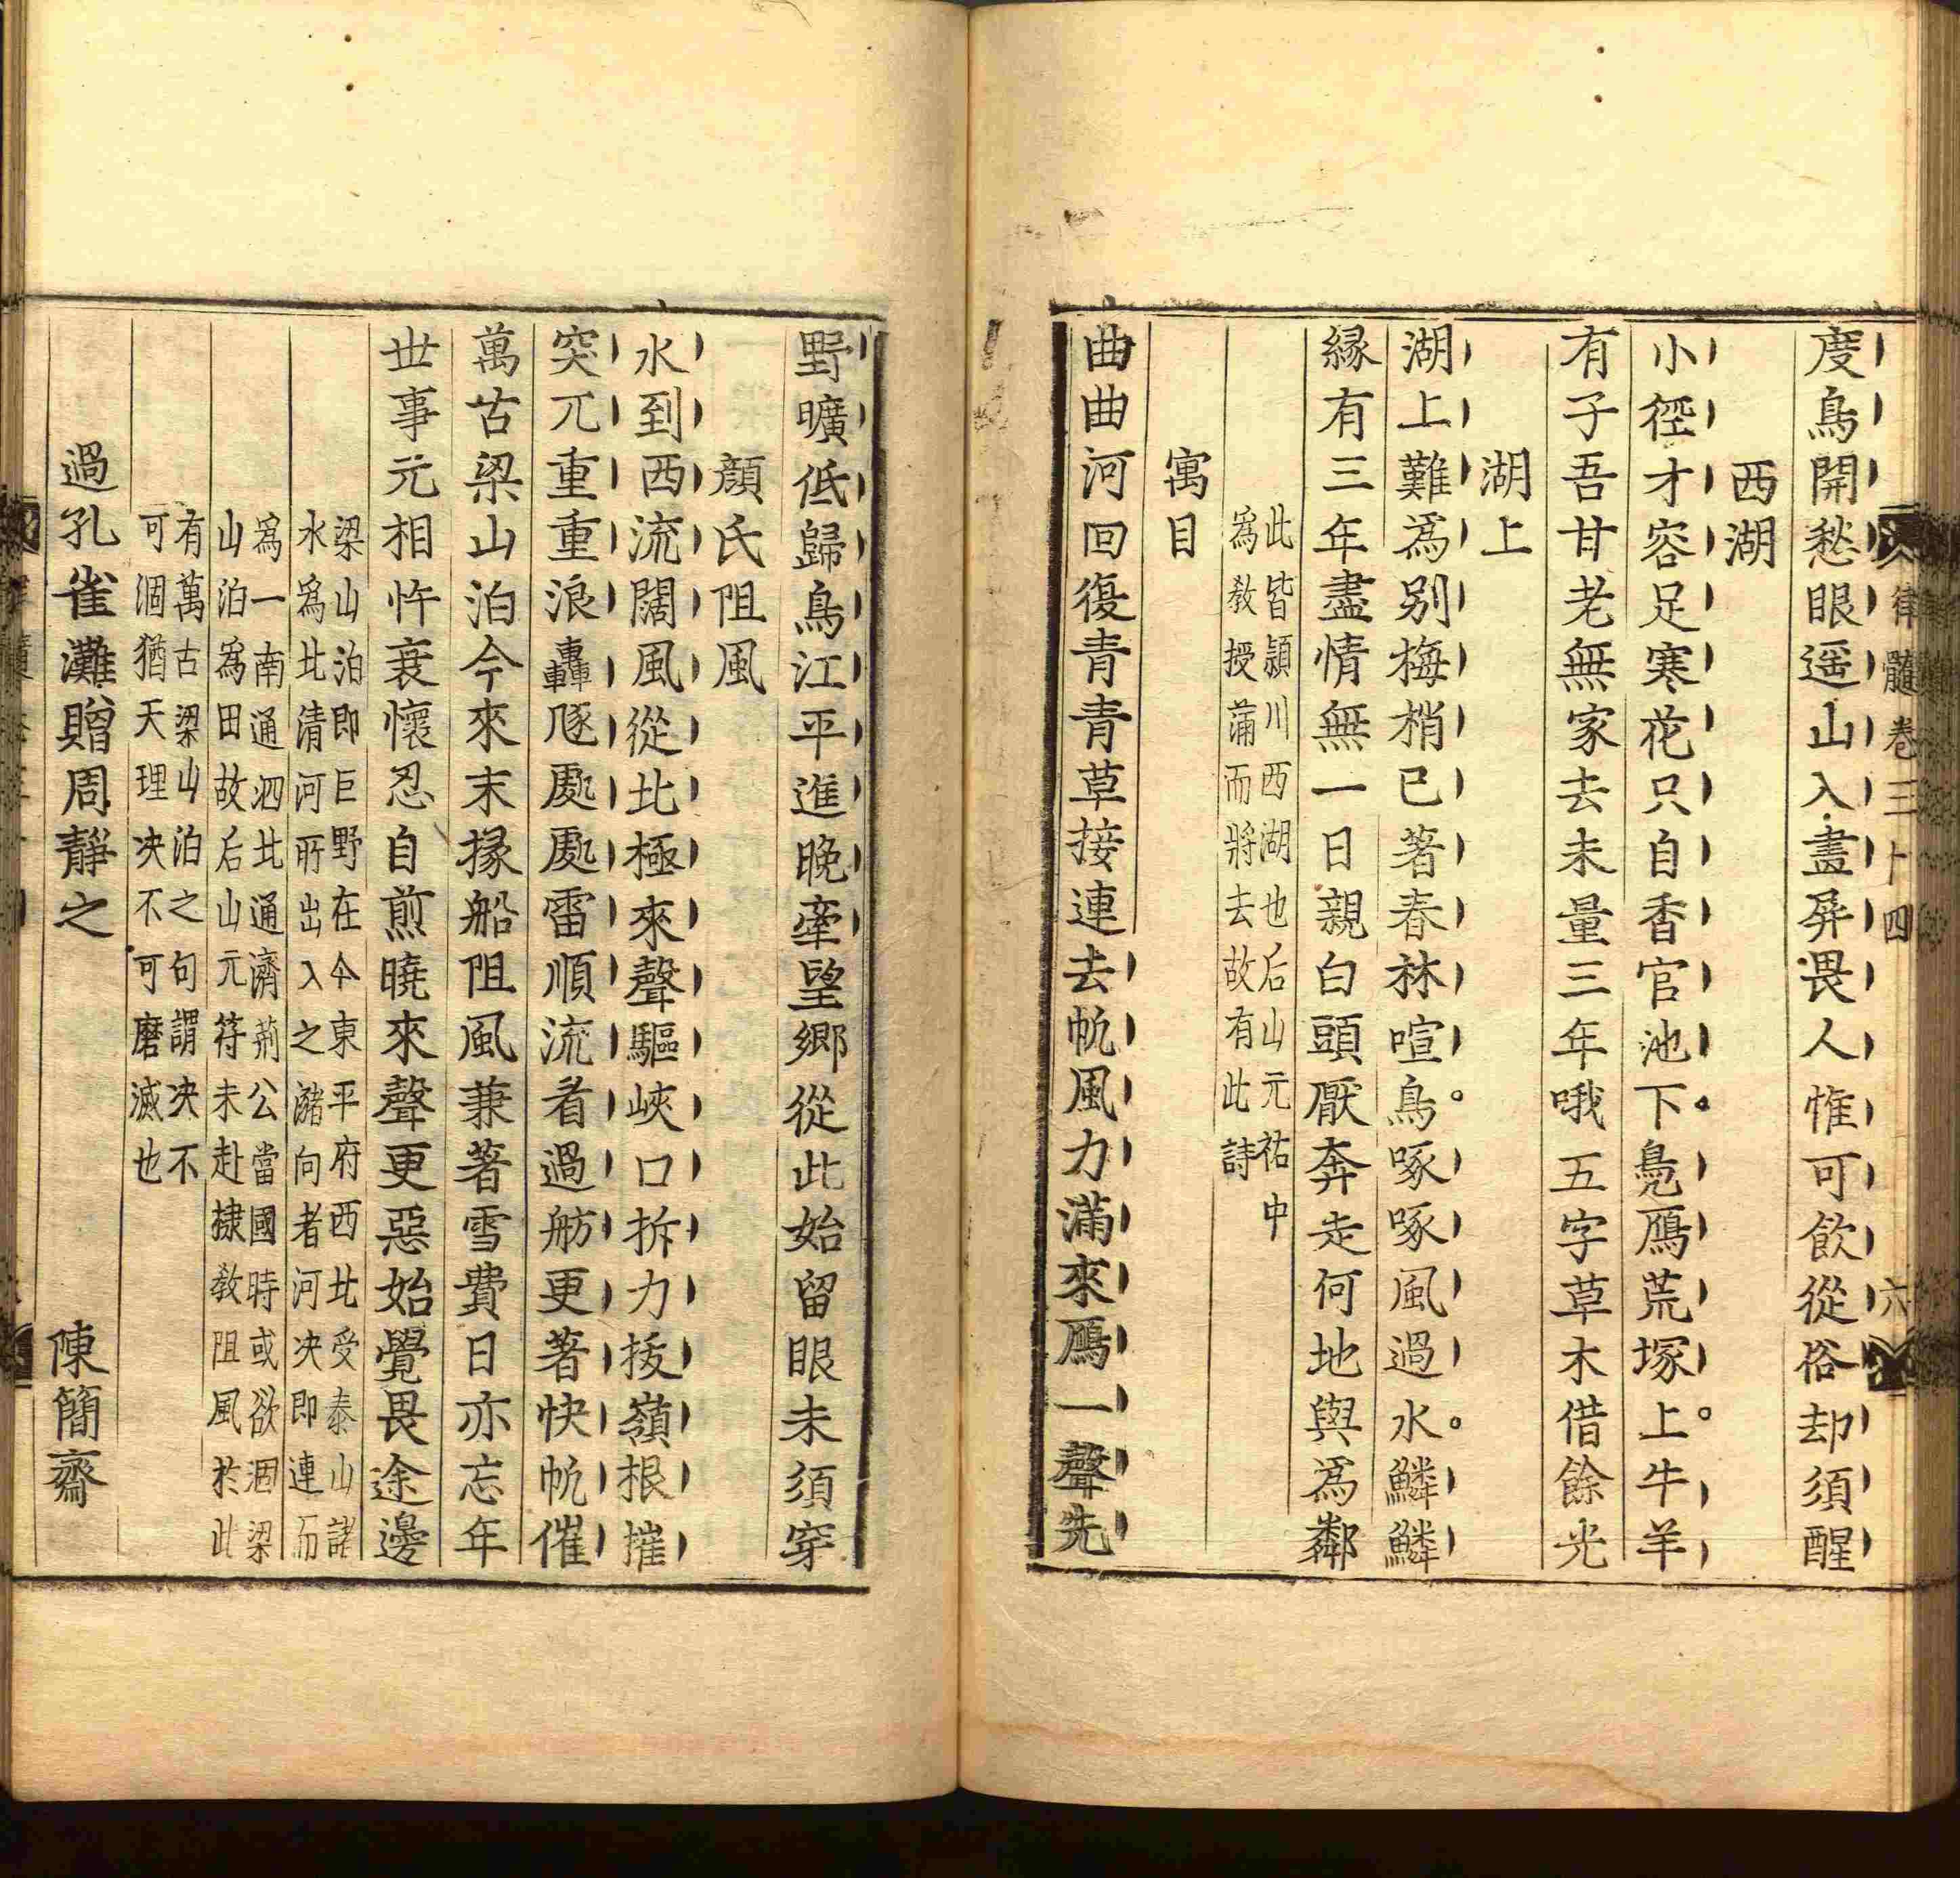 律髓卷三十四
六
度鳥開愁眼遥山入畫屏畏人惟可飲從俗却須醒
西湖
小徑才容足寒花只自香官池下鳧鴈荒塚上牛羊
有子吾甘老無家去未量三年哦五字草木借餘光
湖上
湖上難爲别梅梢已著春林喧鳥啄啄風過水鱗鱗
縁有三年盡情無一日親白頭厭奔走何地與爲鄰
此皆潁川西湖也后山元祐中
爲教授蒲而將去故有此詩
寓目
曲曲河回復青青草接連去帆風力滿來鴈一聲先
野曠低歸鳥江平進晚牽望鄉從此始留眼未須穿
顔氏阻風
水到西流闊風從北極來聲驅峽口拆力拔嶺根摧
突兀重重浪轟豗處處雷順流看過舫更著快帆催
萬古梁山泊今來末掾船阻風兼著雪費日亦忘年
世事元相忤衰懷忍自煎曉來聲更惡始覺畏途邊
梁山泊即巨野在今東平府西北受泰山諸
水爲北清河所出入之瀦向者河决即連而
爲一南通泗北通濟荊公當國時或欲涸梁
山泊爲田故后山元符未赴棣教阻風於此
有萬古梁山泊之句謂决不
可涸猶天理决不可磨滅也
過孔雀灘贈周靜之 陳簡齋